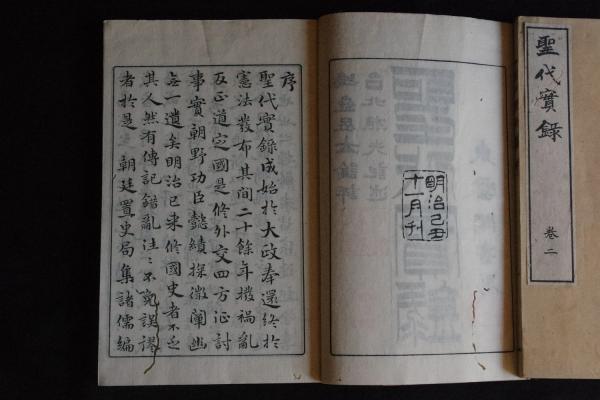 聖代實錄
卷二
明治己丑
十一月刊
序
聖代實錄成始於大政奉還終於
憲法發布其間二十餘年撥禍亂
反正道定國是修外交四方征討
事實朝野功臣懿績探微闡幽
無一遺矣明治已来修國史者不乏
其人然有傳記錯亂注〻不免誤謬
者於是 朝廷置史局集諸儒編